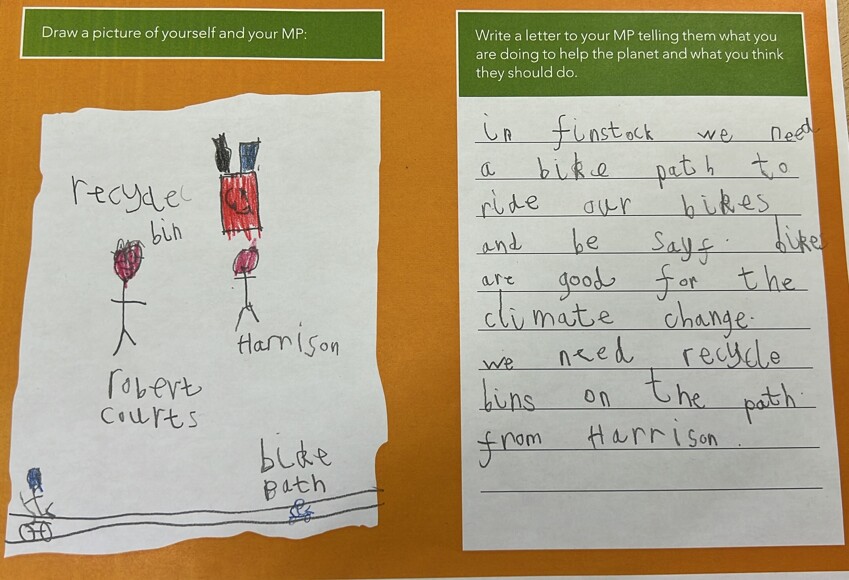 Draw a picture of yourself and your MP:
recycle
bin
Harrison
robert
courts
bike
path
Write a letter to your MP telling them what you
are doing to help the planet and what you think
they should do.
in finstock we need
a bike path to
ride our bikes
and be sayf. bikes
are good for the
climate change.
we need recycle
bins on the path.
from Harrison.